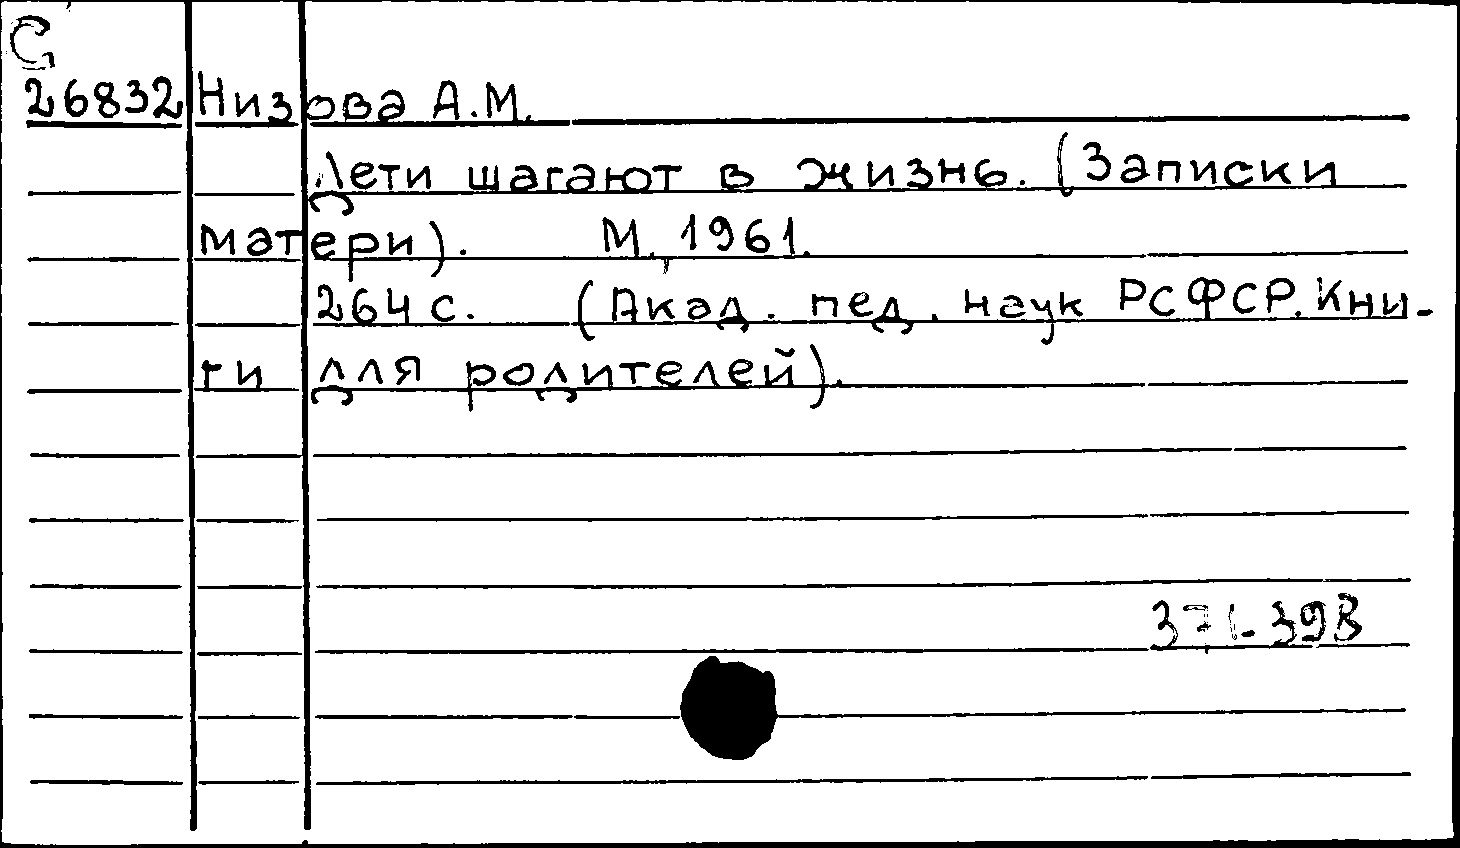 С
26832 Низова А.М.
Дети шагают в жизнь. (Записки
матери). М., 1961.
264 с. (Акад. пед. наук РСФСР. Кни-
ги для родителей).
371-398